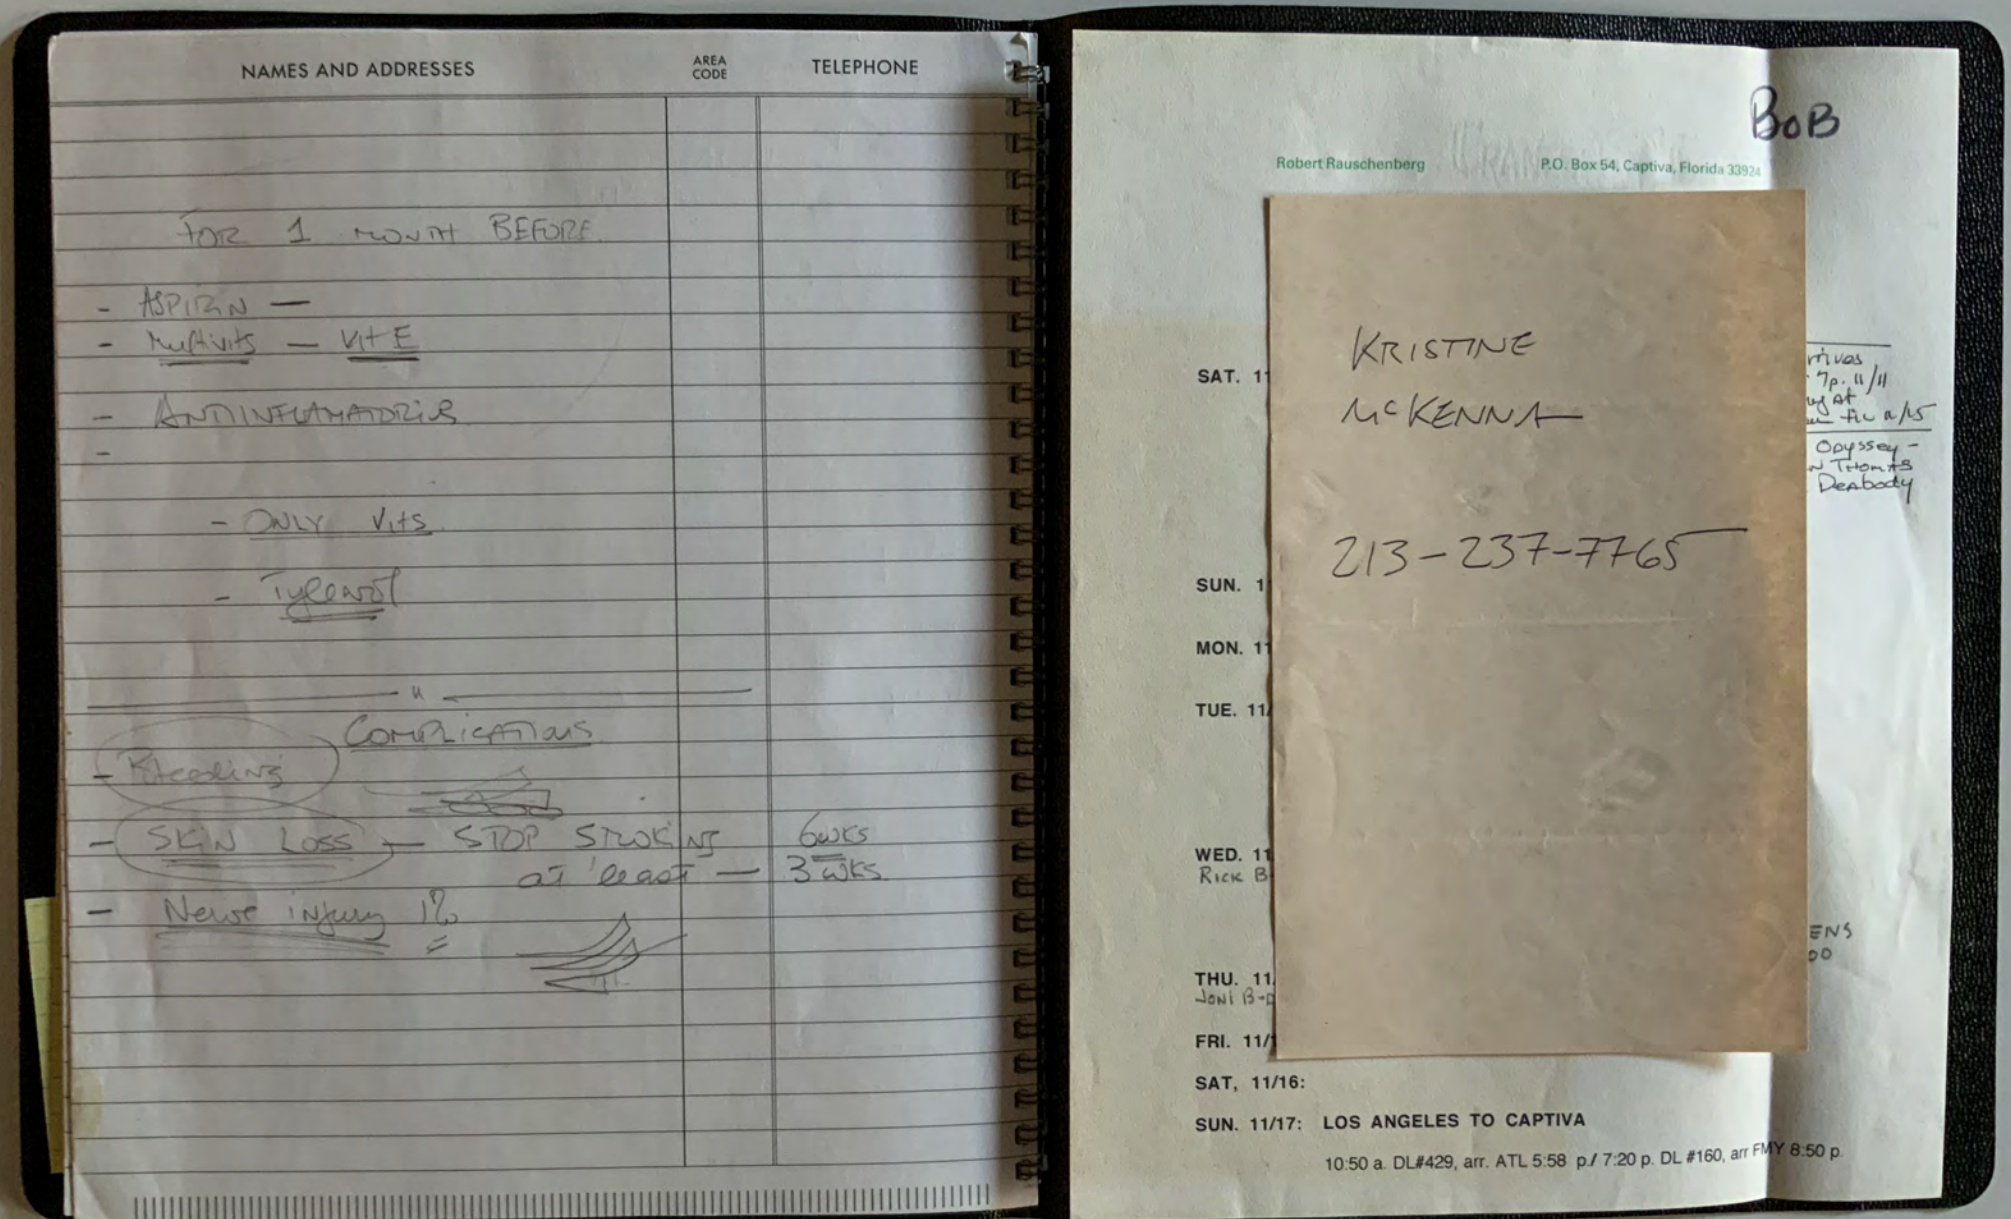 NAMES AND ADDRESSES AREA CODE TELEPHONE
FOR 1 MONTH BEFORE
- ASPIRIN —
- Multivits — Vit E
- ANTIINFLAMATORIES
-
- ONLY Vits.
- Tylenol
— " —
COMPLICATIONS
- Bleeding
- SKIN LOSS — STOP SMOKING 6wks
at least — 3 wks.
- Nerve injury 1%
BOB
Robert Rauschenberg P.O. Box 54, Captiva, Florida 33924
KRISTINE
McKENNA
213-237-7765
rrives
7p. 11/11
at
Odyssey -
THOMAS
Peabody
SAT. 11
SUN. 1
MON. 11
TUE. 11/
WED. 11
RICK B
ENS
00
THU. 11
JONI B-
FRI. 11/
SAT, 11/16:
SUN. 11/17: LOS ANGELES TO CAPTIVA
10:50 a. DL#429, arr. ATL 5:58 p./ 7:20 p. DL #160, arr FMY 8:50 p.